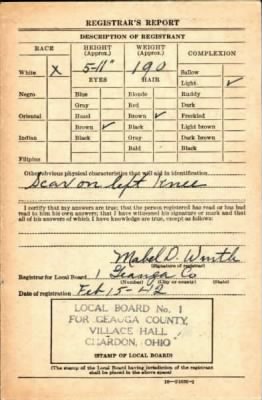 REGISTRAR'S REPORT
DESCRIPTION OF REGISTRANT
RACE HEIGHT (Approx.) WEIGHT (Approx.) COMPLEXION
White X 5-11" 190 Sallow
EYES HAIR Light ✓
Negro Blue Blonde Ruddy
Gray Red Dark
Oriental Hazel Brown ✓ Freckled
Brown ✓ Black Light brown
Indian Black Gray Dark brown
Bald Black
Filipino
Other obvious physical characteristics that will aid in identification
Scar on left Knee
I certify that my answers are true; that the person registered has read or has had
read to him his own answers; that I have witnessed his signature or mark and that
all of his answers of which I have knowledge are true, except as follows:
Mabel D.
(Signature of registrar)
Registrar for Local Board 1 Geauga Co
(Number) (City or county) (State)
Date of registration Feb 15-42
LOCAL BOARD No. 1
FOR GEAUGA COUNTY,
VILLAGE HALL
CHARDON, OHIO
(STAMP OF LOCAL BOARD)
(The stamp of the Local Board having jurisdiction of the registrant
shall be placed in the above space)